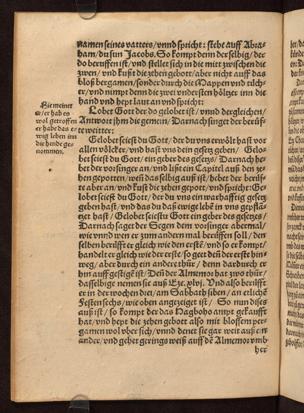 namen seines vatters / vnnd spricht: stehe auff Abra-
ham / du sun Jacobs. So kompt denn der selbig / der
do berüfft ist / vnd stellet sich in die mitt zwischen die
zwen / vnd küßt die zehen gebott / aber nicht auff das
bloß bergamen / sonder durch die Mappen vnd tüch-
er / vnd nimpt denn die zwey vndersten höltzer inn die
hand vnd hept laut an vnd spricht:
Lobet Gott der do gelobet ist / vnnd dergleichen /
Antwort ihm die gemein / Darnach singet der berüff-
te weitter:
Gelobet seiest du Gott / der du vns erwölt hast vor
allen völcker / vnd hast vns dein gesetz geben / Gelo-
bet seiest du Gott / ein geber des gesetz / Darnach he-
bet der vorsinger an / vnd lißt ein Capitel auß den ze-
hen gepotten / weil das selbig auß ist / hebet der berüf-
te aber an / vnd küßt die zehen gepott / vnd spricht: Ge-
lobet seiest du Gott / der du vns ein warhafftig gesetz
geben hast / vnd has du das ewig leb in vns gepflä-
tzt hast / Gelobet seiestu Gott ein geber des gesetzes /
Darnach saget der Segen dem vorsinger abermal /
wie vnnd wen er zum andern mal berüffen soll / den
selben berüfft er gleich wie den erste / vnd so er kompt /
handelt er gleich wie der erst / so gaet den der erst hin-
weg / aber durch ein andere thür / denn dardurch er
hin auff gestigt ist / Den der Almemor hat zwo thür /
dasselbige nemen sie auß
er in der wochen drei / am Sabbath siben / an etliche
Festen sechs / wie oben angezeiget ist / So nun dises
auß ist / so kompt der das Hagboho ampt gekaufft
hat / vnd hept die zehen gebott also mit blossem per-
gamen wol vber sich / vnnd denet sie gar weit auß ein
ander / vnd gehet gerings weiß auff de Almemor vmb
her
Hie meinet
er / er hab es
wol getroffen
er habe das e-
wig leben inn
die hende ge-
nommen.